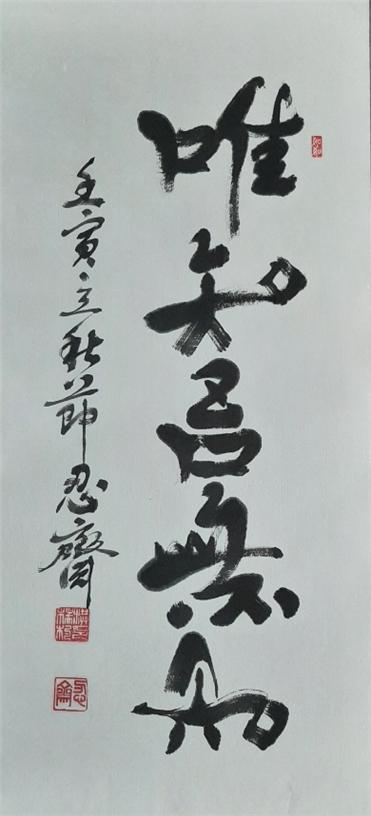 唯知吾無知
壬寅立秋節忍齋
忍齋